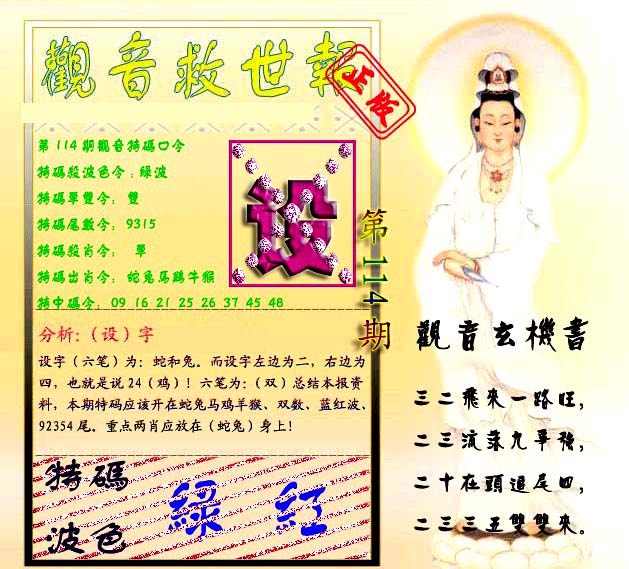 觀音救世報
正版
第114期觀音特碼口令
特碼殺波色令:綠波
特碼單雙令: 雙
特碼尾數令: 9315
特碼殺肖令: 單
特碼出肖令: 蛇兔馬鷄牛猴
特中碼令: 09 16 21 25 26 37 45 48
设
第114期
分析:(设)字
设字(六笔)为:蛇和兔。而设字左边为二,右边为
四,也就是说24(鸡)!六笔为:(双)总结本报资
料,本期特码应该开在蛇兔马鸡羊猴、双数、蓝红波、
92354尾。重点两肖应放在(蛇兔)身上!
特碼
波色
綠 紅
觀音玄機書
三二飛來一路旺,
二三流落九爭強,
二十在頭追尾四,
二三三五雙雙來。